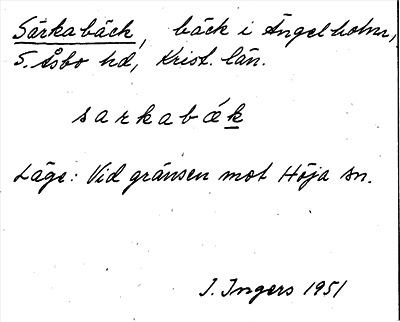 Särkabäck, bäck i Ängelholm,
S. Åsbo hd, Krist. län.
sarkabák
Läge: Vid gränsen mot Höja sn.
I. Ingers 1951